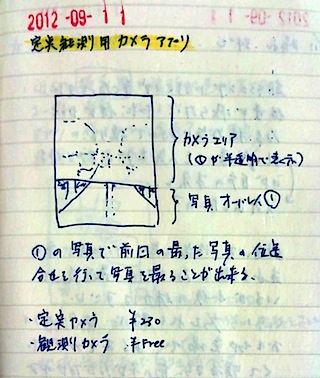 2012-09-11
定点観測用カメラアプリ
カメラエリア
(①が半透明で表示)
写真オーバーレイ①
①の写真で前回の撮った写真の位置
合せを行って写真を撮ることが出来る。
・定点カメラ ¥230
・観測カメラ ¥Free